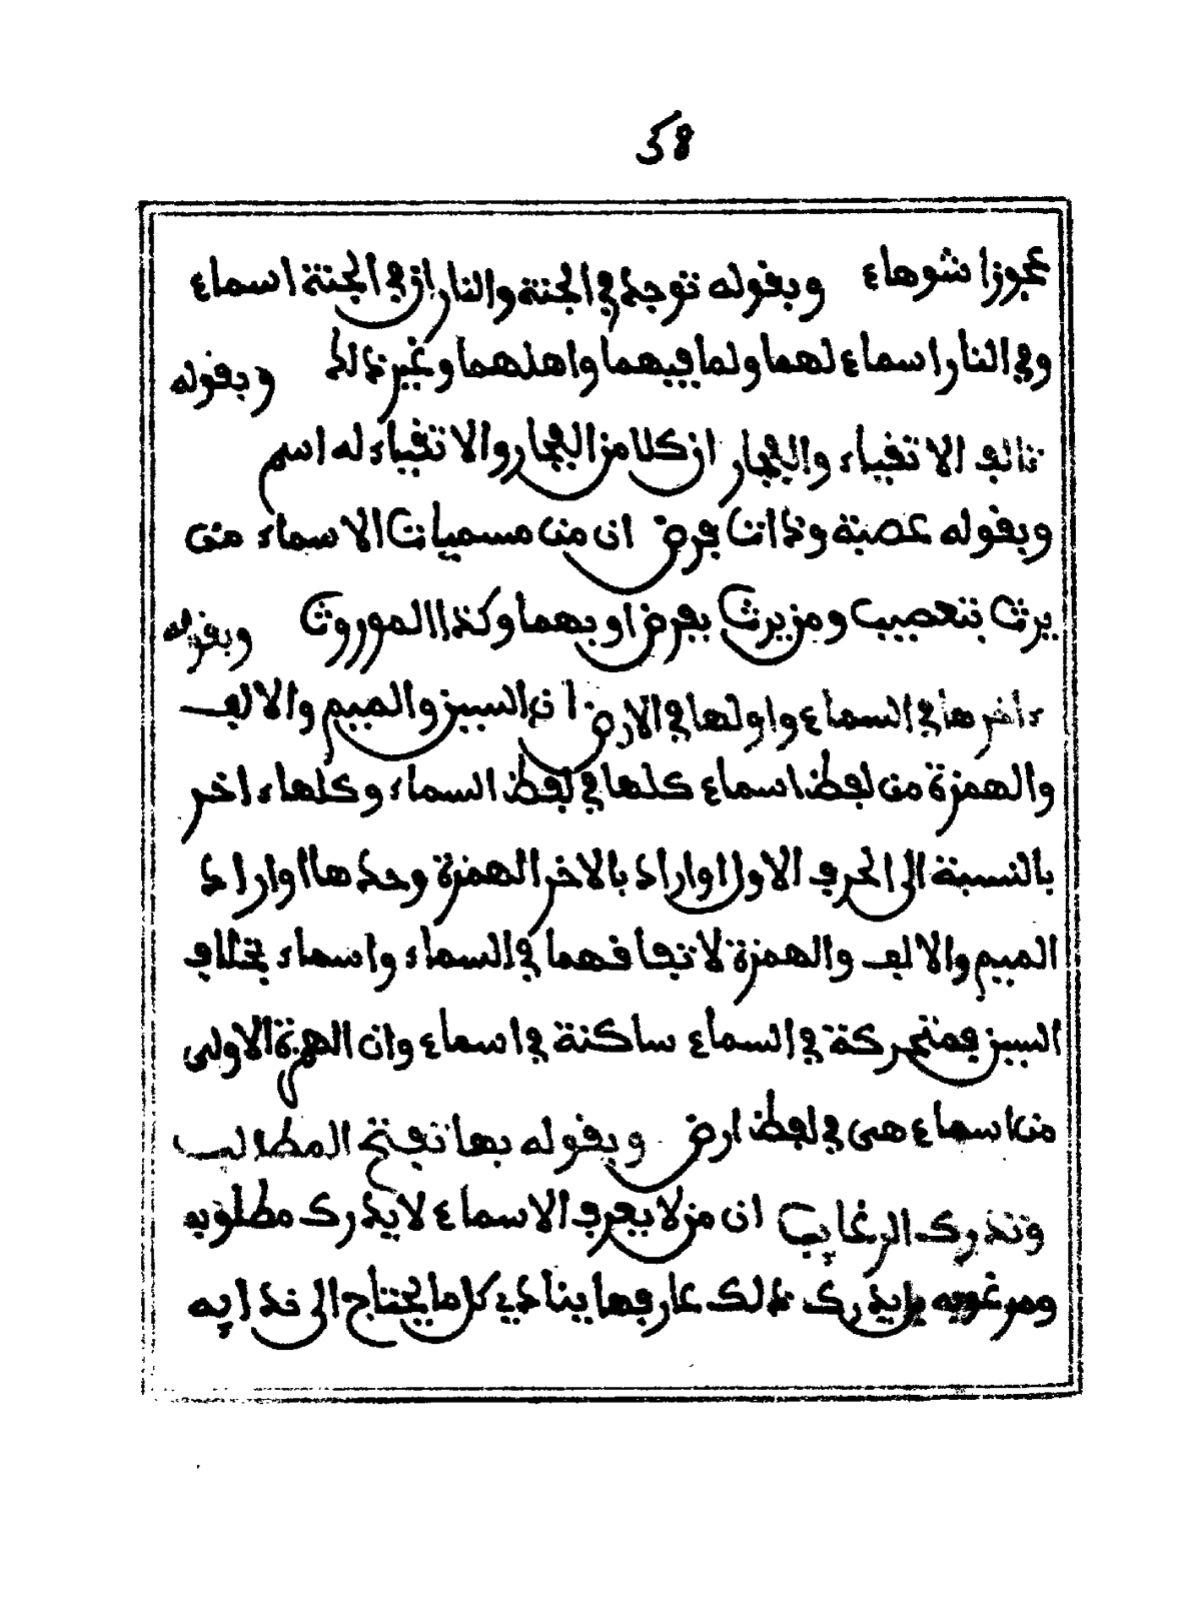 58
عجوزا شوهاء وبقوله توجد في الجنة والنار ان في الجنة اسماء
وفي النار اسماء لهما ولما فيهما واهلهما وغير ذلك وبقوله
تالف الاتقياء والفجار ان كلا من الفجار والاتقياء له اسم
وبقوله عصبة وذات فرض ان من مسميات الاسماء من
يرث بتعصيب ومن يرث بفرض او بهما وكذا الموروث وبقوله
ءاخرها في السماء واولها في الارض ان السين والميم والالف
والهمزة من لفظ اسماء كلها في لفظ السماء وكلها ءاخر
بالنسبة الى الحرف الاول او اراد بالاخر الهمزة وحدها او اراد
الميم والالف والهمزة لاتفاقهما في السماء واسماء بخلاف
السين فمتحركة في السماء ساكنة في اسماء وان الهمزة الاولى
من اسماء هى في لفظ ارض وبقوله بها تفتح المطالب
وتدرك الرغايب ان من لا يعرف الاسماء لا يدرك مطلوبه
ومرغوبه يدرك ذلك عارفها ينادي كل ما يحتاج الى ندايه